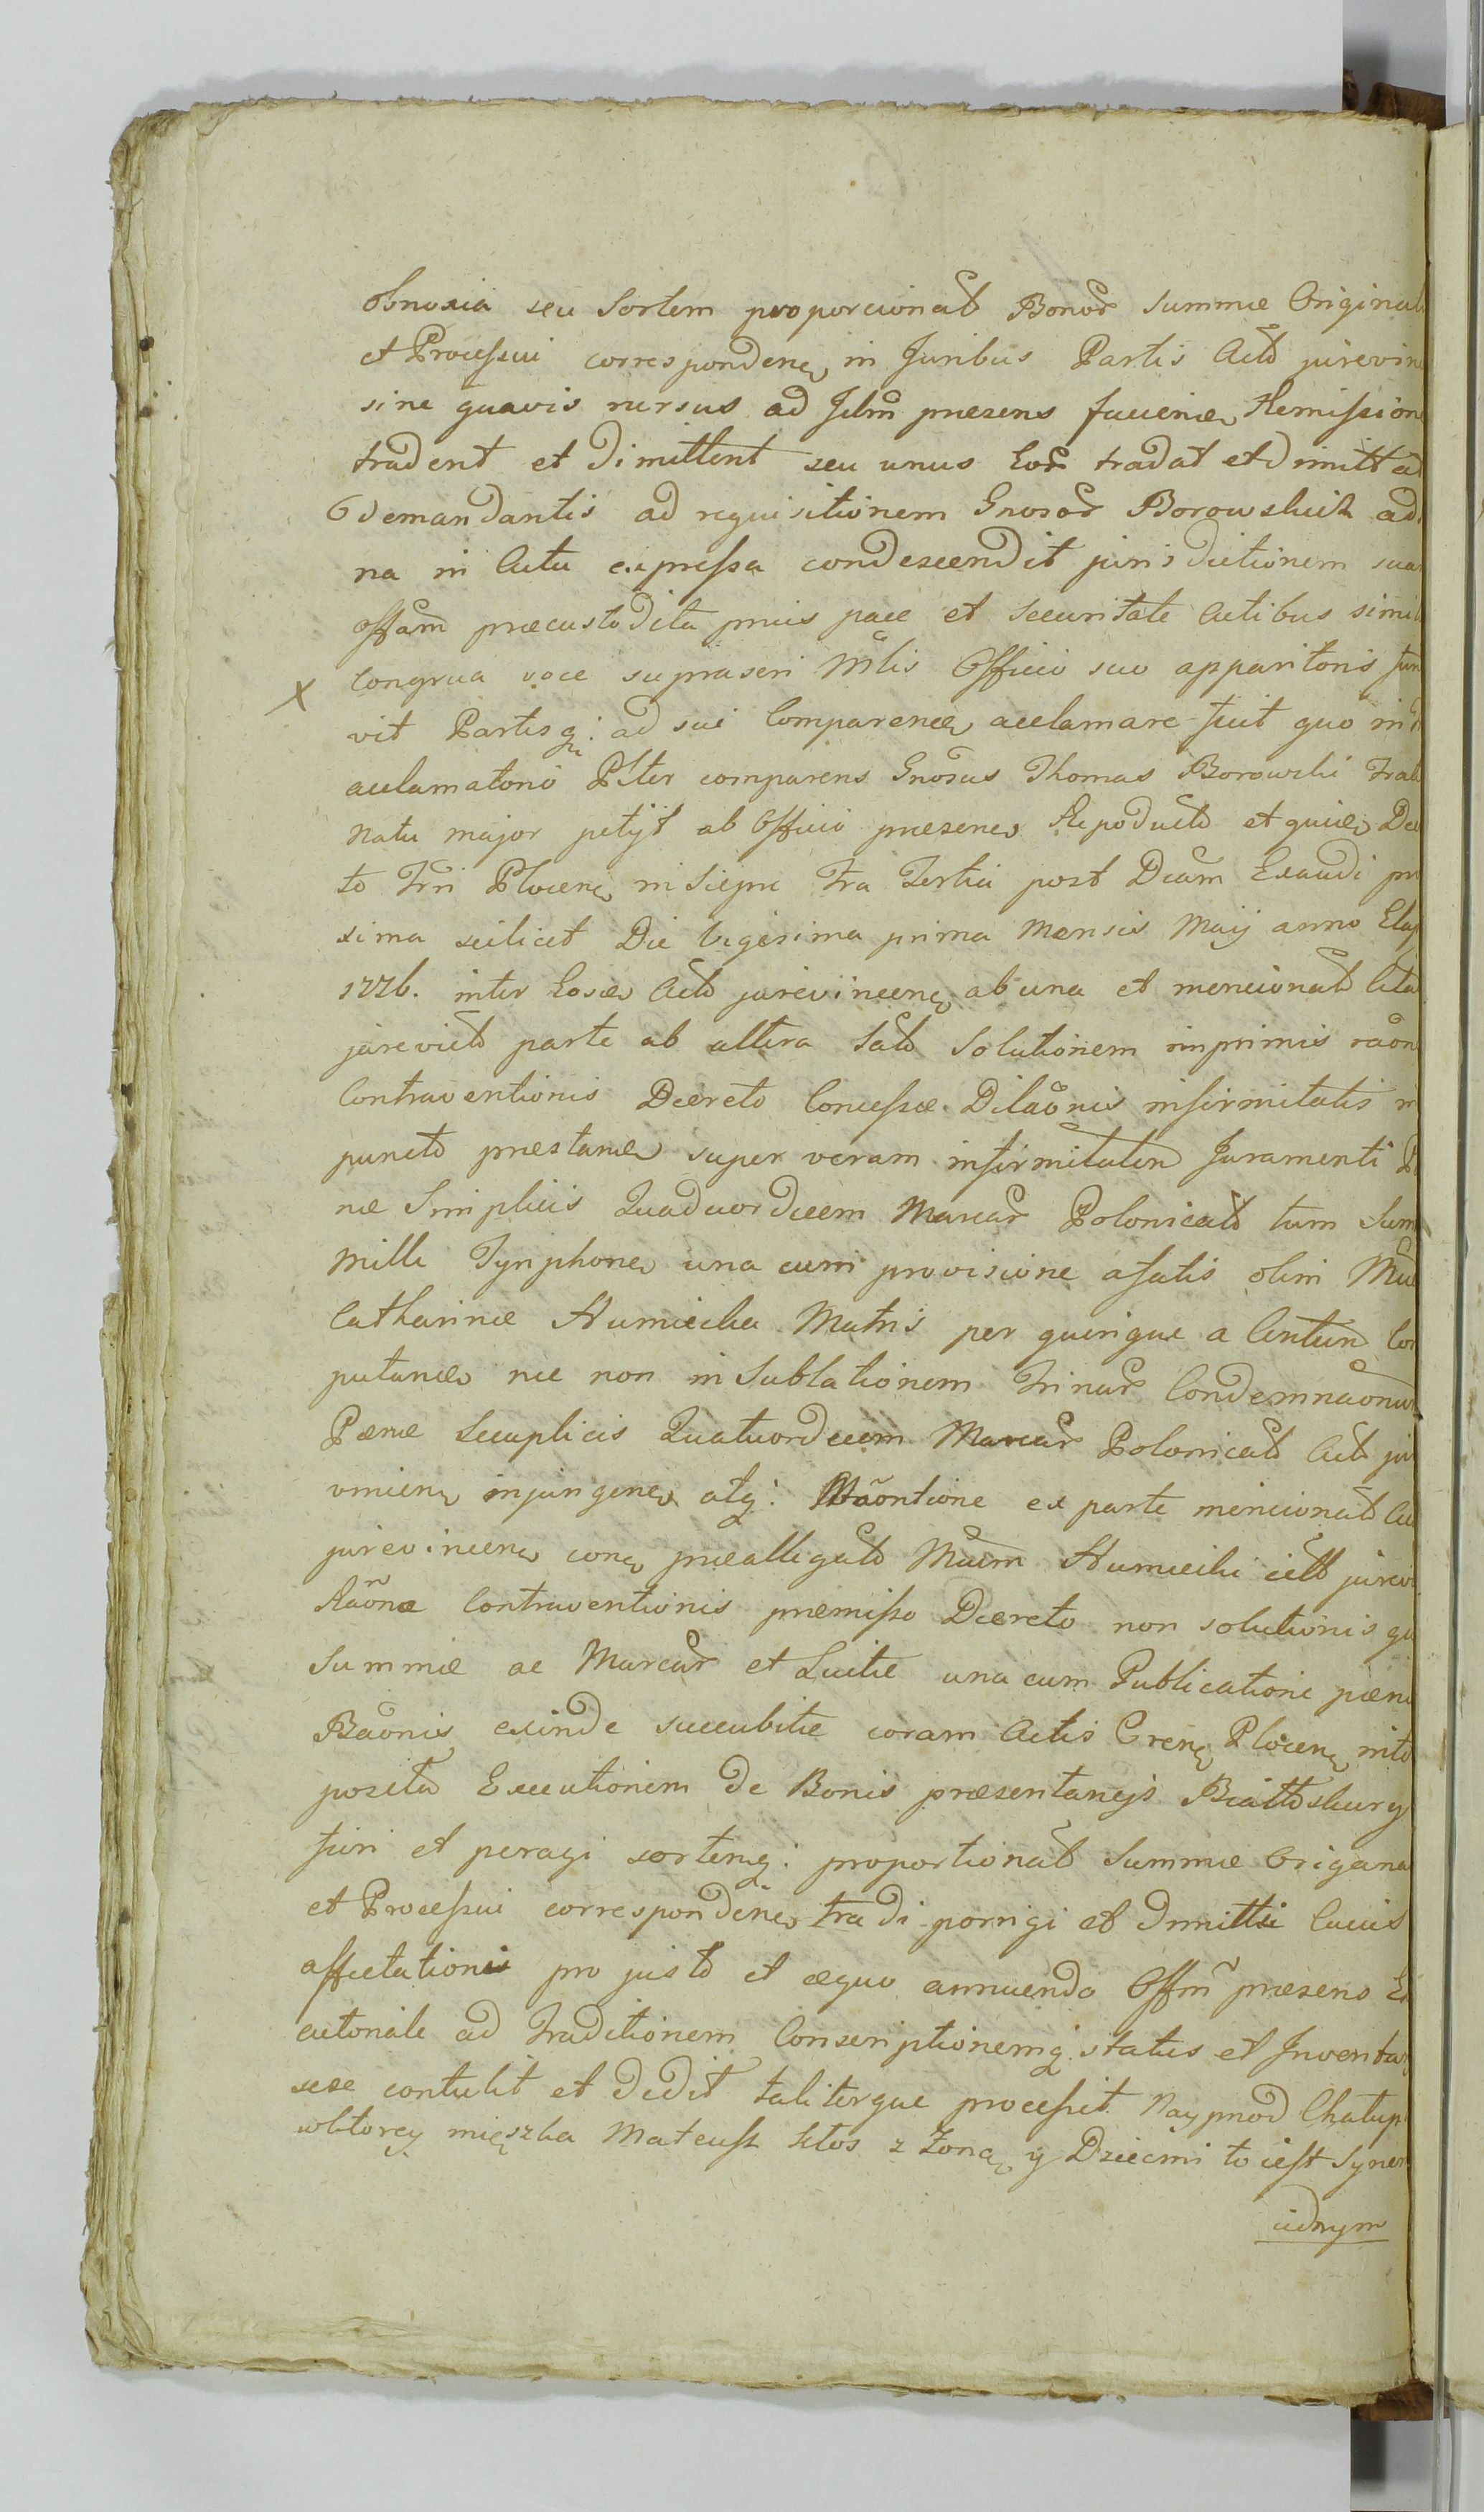 obnoxia seu Sortem proporcionat Bonor Summæ Original
et Processui corresponden in Juribus Partis Act jurevin
sine quavis rursus ad Jdm præsens faciend Remission
tradent et Dimittent seu unus Eor tradat et dimittat
demandantis ad requisitionem Gnosor Borowskich ad
na in Actu expressa condescendit jurisdictionem sua
offam præcustodita prius pace et Securitate Actibus simil
congrua voce suprascri Mlis Officio suo apparitoris fun
vit Partisq: ad sui Comparen acclamare fecit quo in
acclamatorio Plter comparens Gnosus Thomas Borowski Frat
natu major petyt ab Officio præsen Repoduct et quia Dec
to Trri Plocen in Sierpc Fra Tertia post Dcam Exaudi pro
xima scilicet Die Vigesima prima Mensis Maij anno Elap
1776. inter Eosd Act jurevincen ab una et mencionat Cita
jurevict parte ab altera Lat Solutionem inprimis raon
Contraventionis Decreto Concessæ Dilaonis infirmitatis in
puncto præstand super veram infirmitatem Juramenti P
næ Simplicis Quaduordecem Marcar Polonicat tum Sum
mille Tynphon una cum provisione a fatis olim Mca
Catharinæ Humiecka Matris per quinque a Centum Co
putand nec non in Sublationem Trinar Condemnaonum
Pænæ Secuplicis Quatuordecem Marcar Polonicat Act jure
vincen injungen atq: ex parte mencionat Act
jurevincen con præallegat Mcum Humiecki citt jurevi
Raõne Contraventionis præmisso Decreto non solutionisq
Summæ ac Marcar et Luitæ una cum Publicatione pænæ
Baonis exinde succubitæ coram Actis Cren Plocen int
posita Executionem de Bonis præsentaneis
fieri et peragi sortemq: proportionat Summæ Origana
et Processui corresponden tradi porrigi et Dmitti Cuius
affectationi pro justo et æquo annuendo Offm præsens Ex
cutoriale ad Traditionem Conscriptionemq status et Inventar
sese contulit et dedit taliterque processit. Nayprzod Chalup
wktorey mięszka Mateusz Kłos z Zoną y Dziećmi to iest Synem
iednym